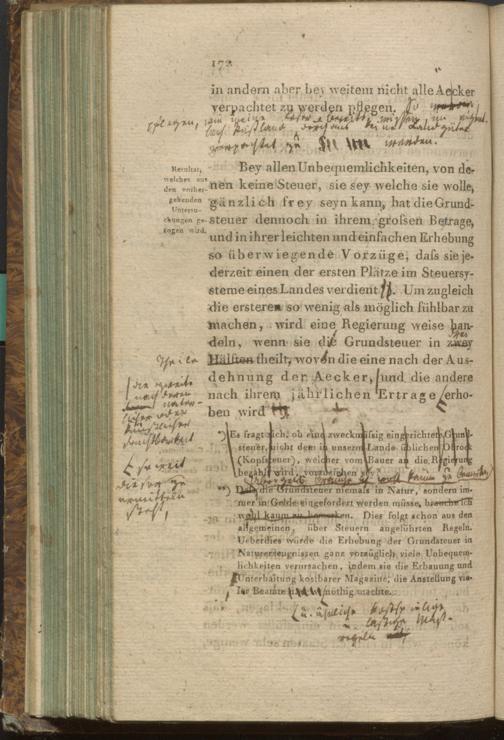 172
in andern aber bey weitem nicht alle Aecker
verpachtet zu werden pflegen.
pflegen, wie meine
nach Rußland
verpachtet zu werden.
Resultat,
welches aus
den vorher-
gehenden
Untersu-
chungen ge-
zogen wird.
Bey allen Unbequemlichkeiten, von de-
nen keine Steuer, sie sey welche sie wolle,
gänzlich frey seyn kann, hat die Grund-
steuer dennoch in ihrem großen Betrage,
und in ihrer leichten und einfachen Erhebung
so überwiegende Vorzüge, daß sie je-
derzeit einen der ersten Plätze im Steuersy-
steme eines Landes verdient. Um zugleich
die ersteren so wenig als möglich fühlbar zu
machen, wird eine Regierung weise han-
deln, wenn sie die Grundsteuer in zwey
Theile
Hälften theilt, wovon die eine nach der Aus-
dehnung der Aecker, und die andere
nach ihrem jährlichen Ertrage erho-
ben wird
die zweite
nach deren
natür-
licher oder
künstlicher
Fruchtbarkeit
so weit
dieser zu
ermitteln
steht
*) Es fragt sich, ob eine zweckmäßig eingerichtete Grund-
steuer, nicht dem in unserm Lande üblichen Obrock
(Kopfsteuer), welcher vom Bauer an die Regierung
bezahlt wird, vorzuziehen sey
**) Daß die Grundsteuer niemals in Natur, sondern im-
mer in Gelde eingefordert werden müsse, brauche ich
wohl kaum zu bemerken. Dies folgt schon aus den
allgemeinen, über Steuern angeführten Regeln.
Ueberdies würde die Erhebung der Grundsteuer in
Naturerzeugnissen ganz vorzüglich viele Unbequem-
lichkeiten verursachen, indem sie die Erbauung und
Unterhaltung kostbarer Magazine, die Anstellung vie-
ler Beamten nöthig machte.
u. ähnliche kostspielige
u. lästige Maß-
regeln